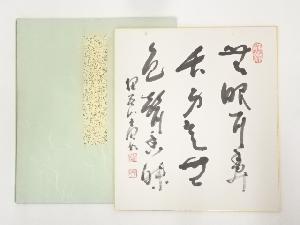 無眼耳鼻
舌身意無
色聲香味